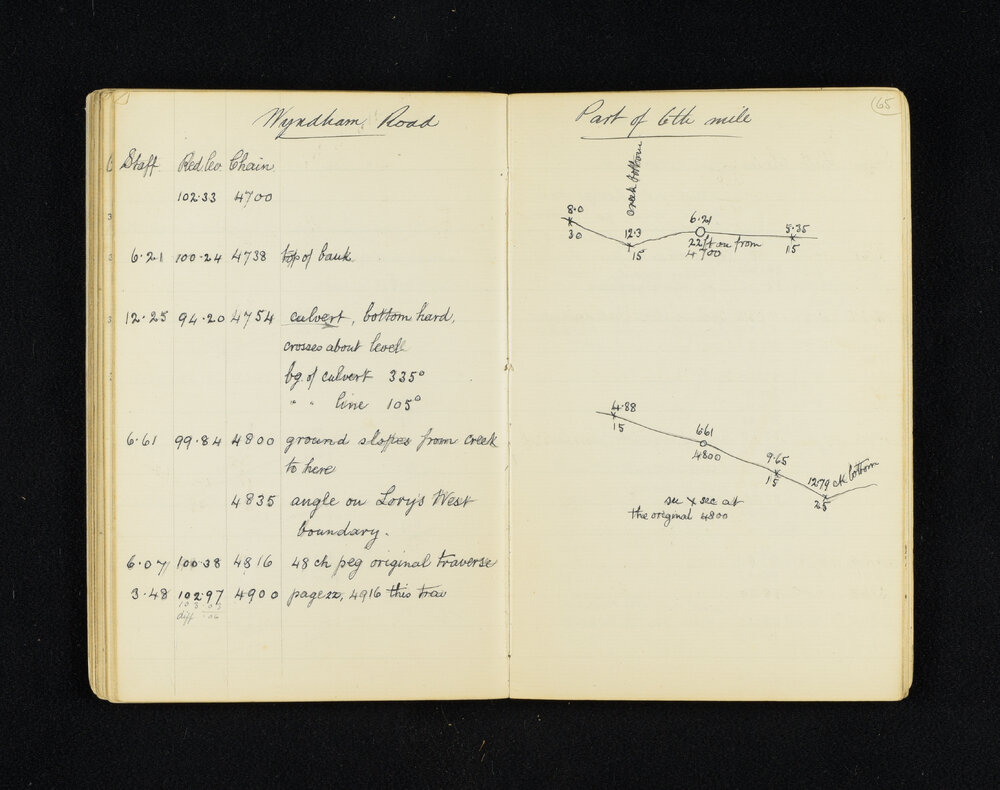 Wyndham Road
Staff Red Lev Chain
102·33 4700
6·21 100·24 4738 top of bank
12·25 94·20 4754 culvert, bottom hard,
crosses about level
bg. of culvert 335°
" " line 105°
6·61 99·84 4800 ground slopes from creek
to here
4835 angle on Lory's West
boundary.
6·07 100·38 4816 48 ch peg original traverse
3·48 102·97 4900 page 22, 4916 this trav
103·03
diff ·06
65
Part of 6th mile
creek bottom
8·0
30
12·3
15
6·21
22ft on from
4700
5·35
15
4·88
15
6·61
4800
9·65
15
12·79 ck bottom
25
see x sec at
the original 4800